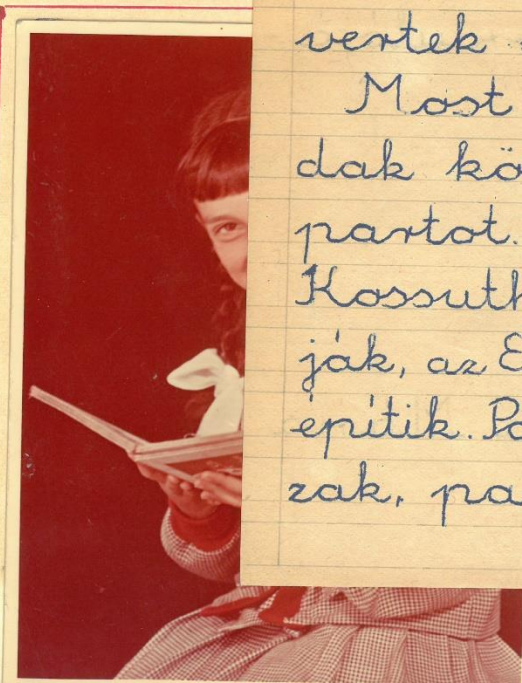 vertek
Most
dak kö
partot.
Kossuth
ják, az E
építik. Pa
zak, pa